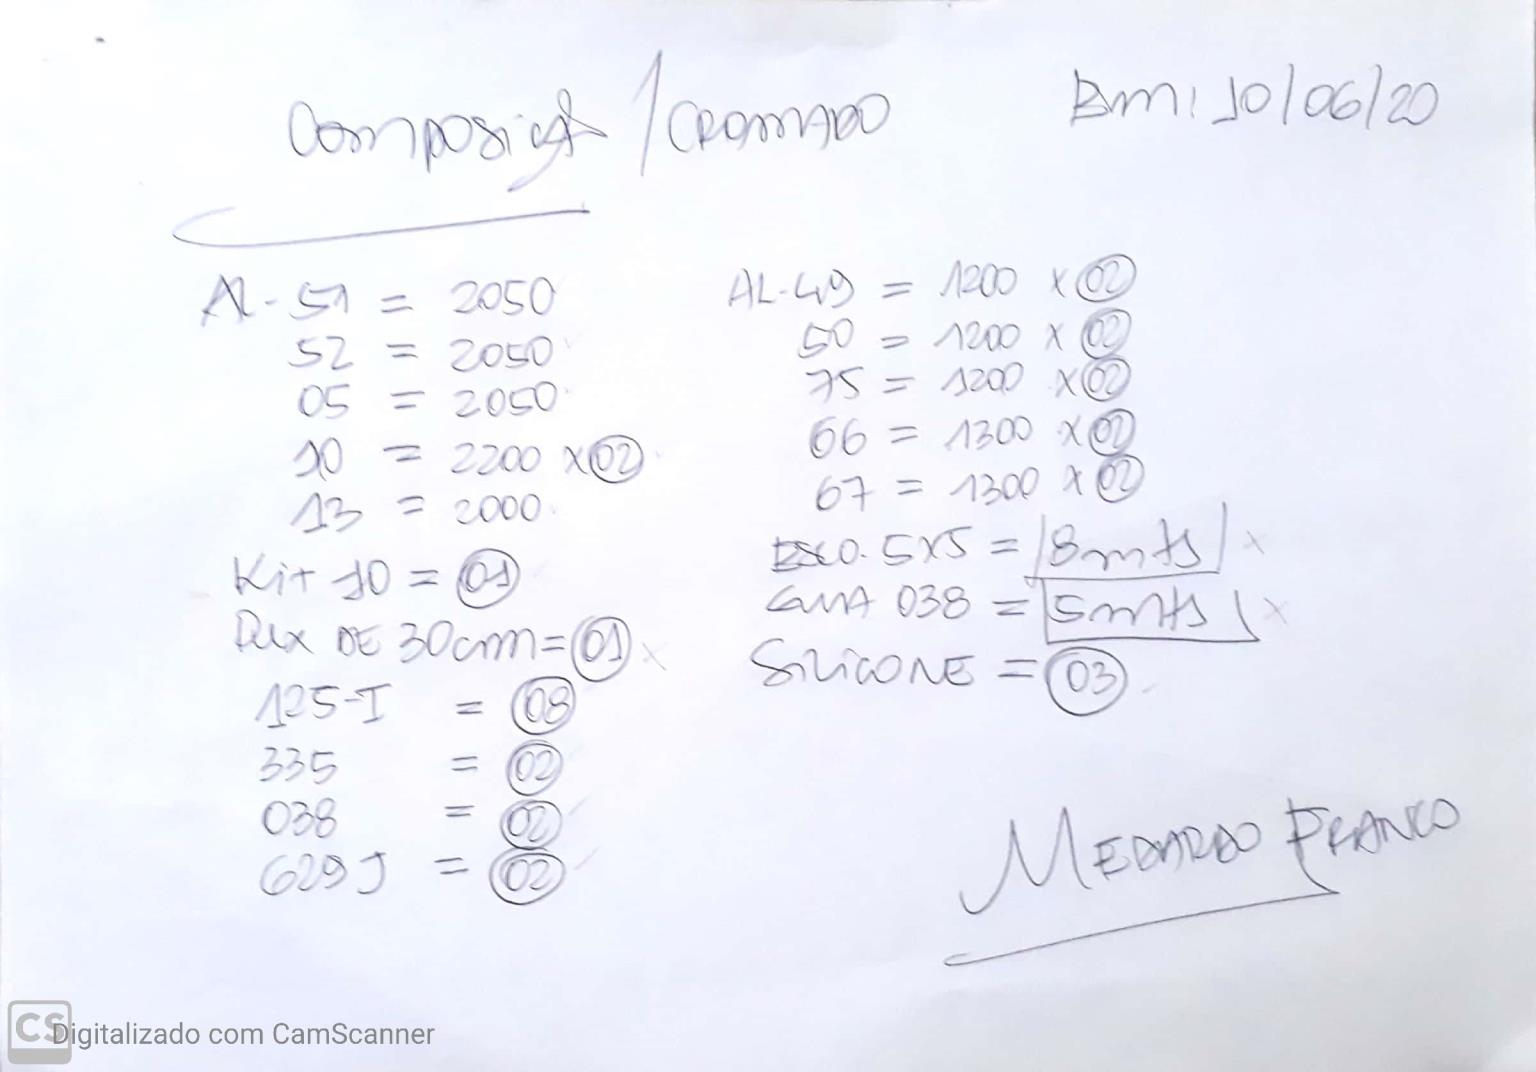 Composição / CROMADO
Bm: 10/06/20
AL-51 = 2050
52 = 2050
05 = 2050
10 = 2200 x 02
13 = 2000
Kit 10 = 01
DE 30cm = 01 x
125-I = 08
335 = 02
038 = 02
629 J = 02
AL-49 = 1200 x 02
50 = 1200 x 02
75 = 1200 x 02
66 = 1300 x 02
67 = 1300 x 02
5x5 = 8mts x
GUIA 038 = 5mts x
SILICONE = 03
MEDARDO FRANCO
CS Digitalizado com CamScanner